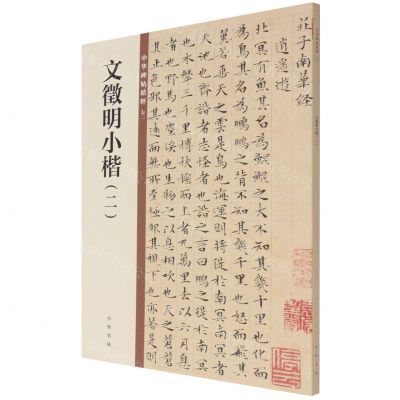 莊子南華經
逍遙遊
北冥有魚其名為鯤鯤之大不知其幾千里也化而
為鳥其名為鵬鵬之背不知其幾千里也怒而飛其
翼若垂天之雲是鳥也海運則將徙於南冥南冥者
天池也齊諧者志怪者也諧之言曰鵬之徙於南冥
也水擊三千里摶扶搖而上者九萬里去以六月息
者也野馬也塵埃也生物之以息相吹也天之蒼蒼
其正色邪其遠而無所至極邪其視下也亦若是則
中华碑帖精粹
文徵明小楷（二）
中华书局